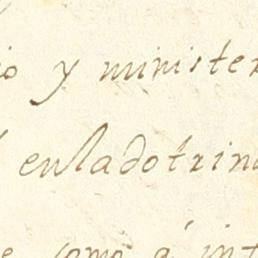 io y minister
enladotrina
e como á int